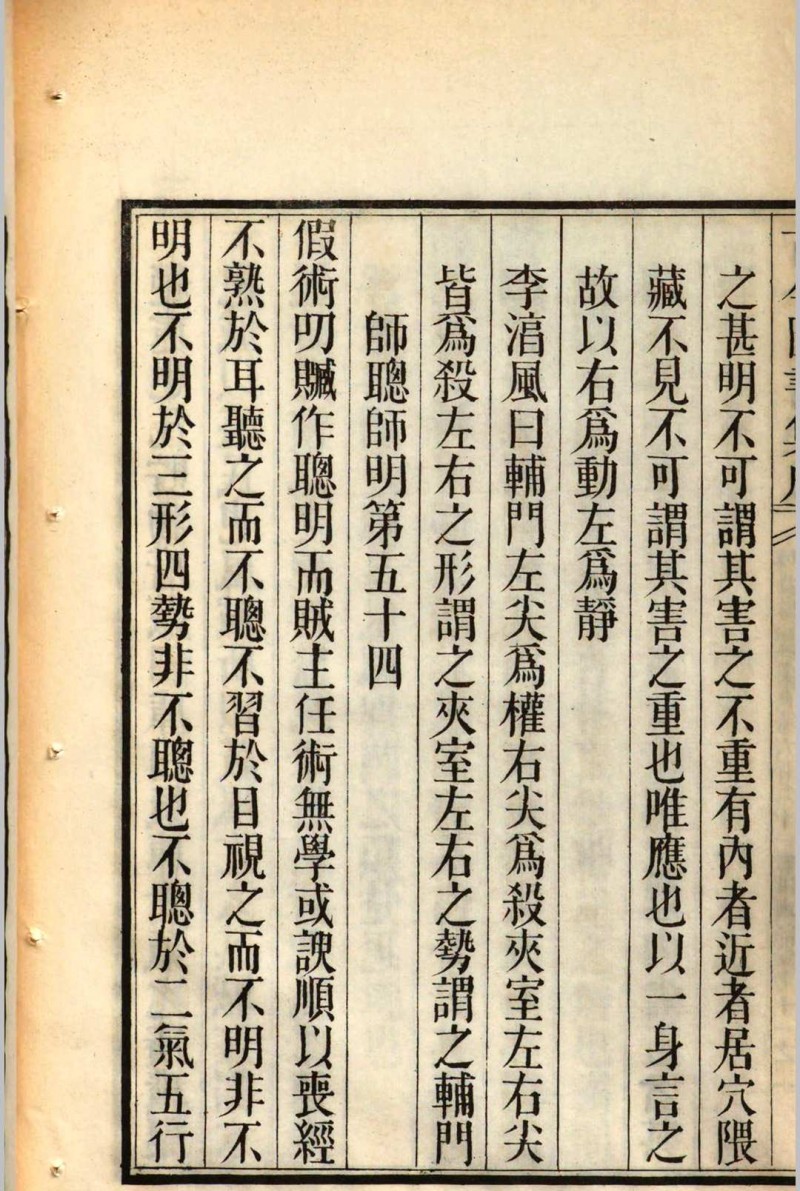 之甚明不可謂其害之不重有內者近者居穴隈
藏不見不可謂其害之重也唯應也以一身言之
故以右爲動左爲靜
李湻風曰輔門左尖爲權右尖爲殺夾室左右尖
皆爲殺左右之形謂之夾室左右之勢謂之輔門
師聰師明第五十四
假術叨贓作聰明而賊主任術無學或諛順以喪經
不熟於耳聽之而不聰不習於目視之而不明非不
明也不明於三形四勢非不聰也不聰於二氣五行